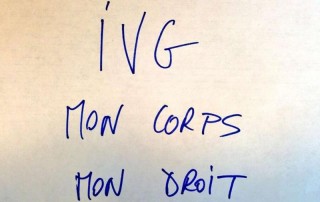 IVG
MON CORPS
MON DROIT